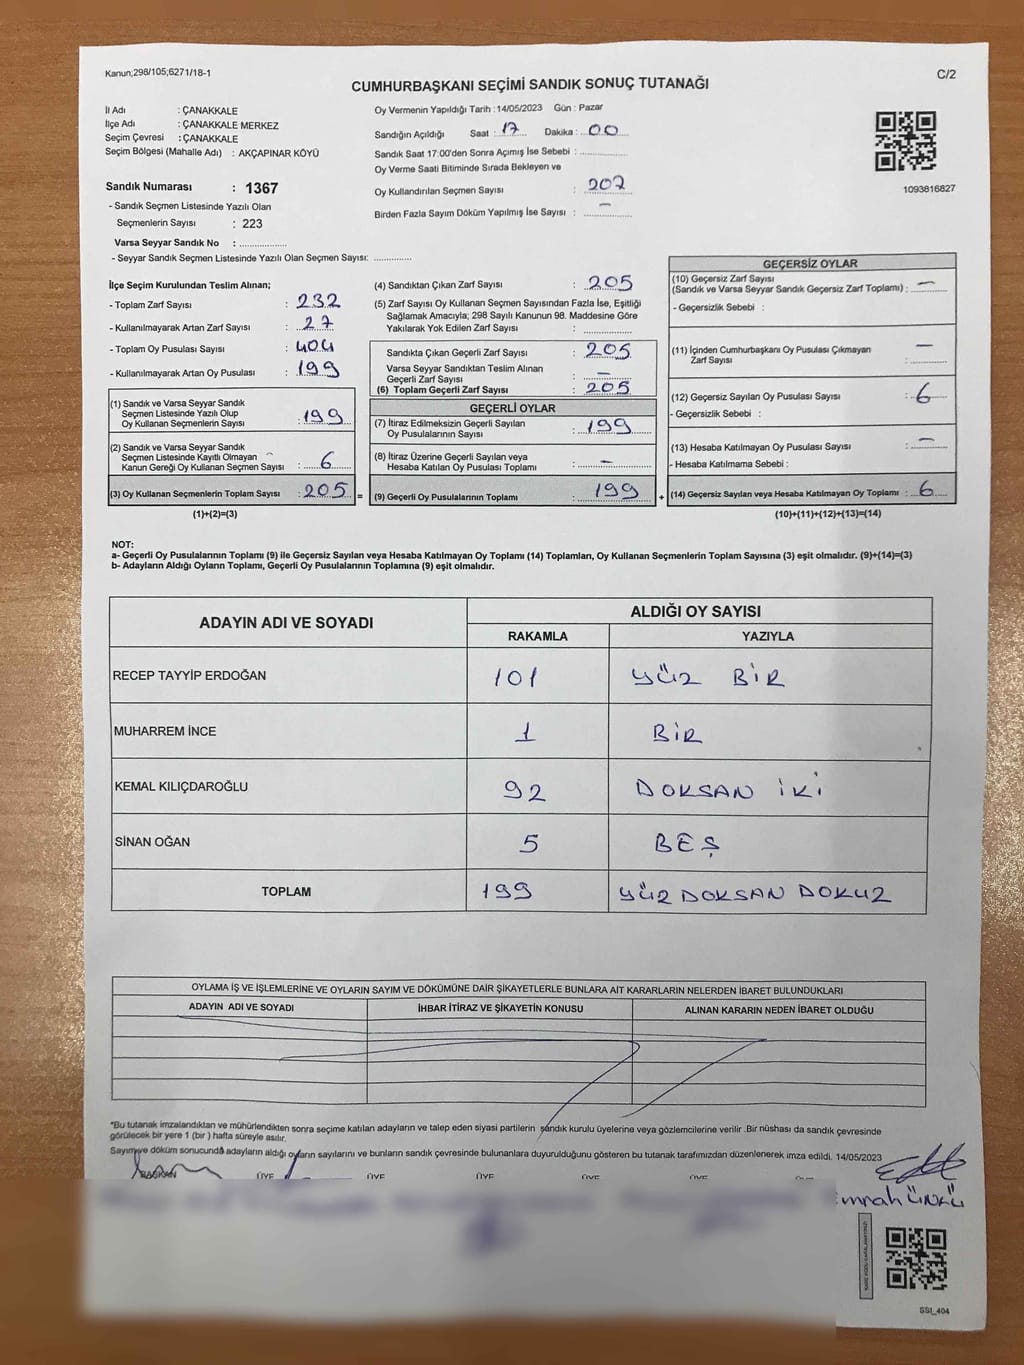 Kanun;298/105;6271/18-1
C/2
CUMHURBAŞKANI SEÇİMİ SANDIK SONUÇ TUTANAĞI
İl Adı : ÇANAKKALE
İlçe Adı : ÇANAKKALE MERKEZ
Seçim Çevresi : ÇANAKKALE
Seçim Bölgesi (Mahalle Adı) : AKÇAPINAR KÖYÜ
Sandık Numarası : 1367
- Sandık Seçmen Listesinde Yazılı Olan
Seçmenlerin Sayısı : 223
Varsa Seyyar Sandık No : ................
- Seyyar Sandık Seçmen Listesinde Yazılı Olan Seçmen Sayısı: .............
Oy Vermenin Yapıldığı Tarih : 14/05/2023 Gün : Pazar
Sandığın Açıldığı Saat : 17 Dakika : 00
Sandık Saat 17:00'den Sonra Açımış İse Sebebi : ................
Oy Verme Saati Bitiminde Sırada Bekleyen ve
Oy Kullandırılan Seçmen Sayısı : 202
Birden Fazla Sayım Döküm Yapılmış İse Sayısı : –
1093816827
İlçe Seçim Kurulundan Teslim Alınan;
- Toplam Zarf Sayısı : 232
- Kullanılmayarak Artan Zarf Sayısı : 27
- Toplam Oy Pusulası Sayısı : 404
- Kullanılmayarak Artan Oy Pusulası : 199
(1) Sandık ve Varsa Seyyar Sandık
Seçmen Listesinde Yazılı Olup
Oy Kullanan Seçmenlerin Sayısı : 199
(2) Sandık ve Varsa Seyyar Sandık
Seçmen Listesinde Kayıtlı Olmayan
Kanun Gereği Oy Kullanan Seçmen Sayısı : 6
(3) Oy Kullanan Seçmenlerin Toplam Sayısı : 205 =
(1)+(2)=(3)
(4) Sandıktan Çıkan Zarf Sayısı : 205
(5) Zarf Sayısı Oy Kullanan Seçmen Sayısından Fazla İse, Eşitliği
Sağlamak Amacıyla; 298 Sayılı Kanunun 98. Maddesine Göre
Yakılarak Yok Edilen Zarf Sayısı : ................
Sandıkta Çıkan Geçerli Zarf Sayısı : 205
Varsa Seyyar Sandıktan Teslim Alınan
Geçerli Zarf Sayısı : –
(6) Toplam Geçerli Zarf Sayısı : 205
GEÇERLİ OYLAR
(7) İtiraz Edilmeksizin Geçerli Sayılan
Oy Pusulalarının Sayısı : 199
(8) İtiraz Üzerine Geçerli Sayılan veya
Hesaba Katılan Oy Pusulası Toplamı : –
(9) Geçerli Oy Pusulalarının Toplamı : 199 +
GEÇERSİZ OYLAR
(10) Geçersiz Zarf Sayısı
(Sandık ve Varsa Seyyar Sandık Geçersiz Zarf Toplamı) : –
- Geçersizlik Sebebi :
(11) İçinden Cumhurbaşkanı Oy Pusulası Çıkmayan
Zarf Sayısı : –
(12) Geçersiz Sayılan Oy Pusulası Sayısı : 6
- Geçersizlik Sebebi :
(13) Hesaba Katılmayan Oy Pusulası Sayısı : –
- Hesaba Katılmama Sebebi :
(14) Geçersiz Sayılan veya Hesaba Katılmayan Oy Toplamı : 6
(10)+(11)+(12)+(13)=(14)
NOT:
a- Geçerli Oy Pusulalarının Toplamı (9) ile Geçersiz Sayılan veya Hesaba Katılmayan Oy Toplamı (14) Toplamları, Oy Kullanan Seçmenlerin Toplam Sayısına (3) eşit olmalıdır. (9)+(14)=(3)
b- Adayların Aldığı Oyların Toplamı, Geçerli Oy Pusulalarının Toplamına (9) eşit olmalıdır.
ADAYIN ADI VE SOYADI
ALDIĞI OY SAYISI
RAKAMLA YAZIYLA
RECEP TAYYİP ERDOĞAN 101 YÜZ BİR
MUHARREM İNCE 1 BİR
KEMAL KILIÇDAROĞLU 92 DOKSAN İKİ
SİNAN OĞAN 5 BEŞ
TOPLAM 199 YÜZ DOKSAN DOKUZ
OYLAMA İŞ VE İŞLEMLERİNE VE OYLARIN SAYIM VE DÖKÜMÜNE DAİR ŞİKAYETLERLE BUNLARA AİT KARARLARIN NELERDEN İBARET BULUNDUKLARI
ADAYIN ADI VE SOYADI İHBAR İTİRAZ VE ŞİKAYETİN KONUSU ALINAN KARARIN NEDEN İBARET OLDUĞU
*Bu tutanak imzalandıktan ve mühürlendikten sonra seçime katılan adayların ve talep eden siyasi partilerin sandık kurulu üyelerine veya gözlemcilerine verilir .Bir nüshası da sandık çevresinde
görülecek bir yere 1 (bir ) hafta süreyle asılır.
Sayım ve döküm sonucunda adayların aldığı oyların sayılarını ve bunların sandık çevresinde bulunanlara duyurulduğunu gösteren bu tutanak tarafımızdan düzenlenerek imza edildi. 14/05/2023
BAŞKAN ÜYE ÜYE ÜYE ÜYE ÜYE ÜYE
SSI_404